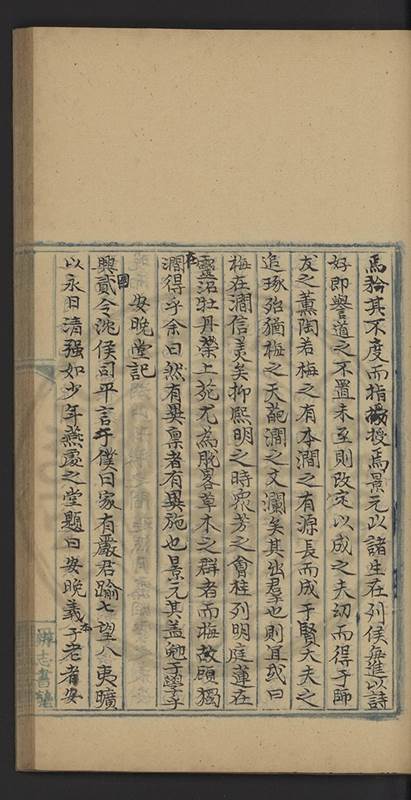 焉矜其不度而指授焉景元以諸生在列侯每進以詩
好即譽道之不置未至則改定以成之夫幼而得于師
友之薰陶若梅之有本澗之有源長而成于賢大夫之
追琢殆猶梅之天葩澗之文瀾矣其出羣也則宜或曰
梅在澗信美矣抑熙明之時衆芳之會桂列明庭蓮在
靈沼牡丹榮上苑尤為脫畧草木之群者而梅故頋獨
在澗得乎余曰然有異禀者有異施也景元其盖勉于學乎
安晚堂記
興貳令沈侯司平言于僕曰家有嚴君踰七望八夷曠
以永日清强如少年燕處之堂題曰安晚義本于老者安
辨志書塾